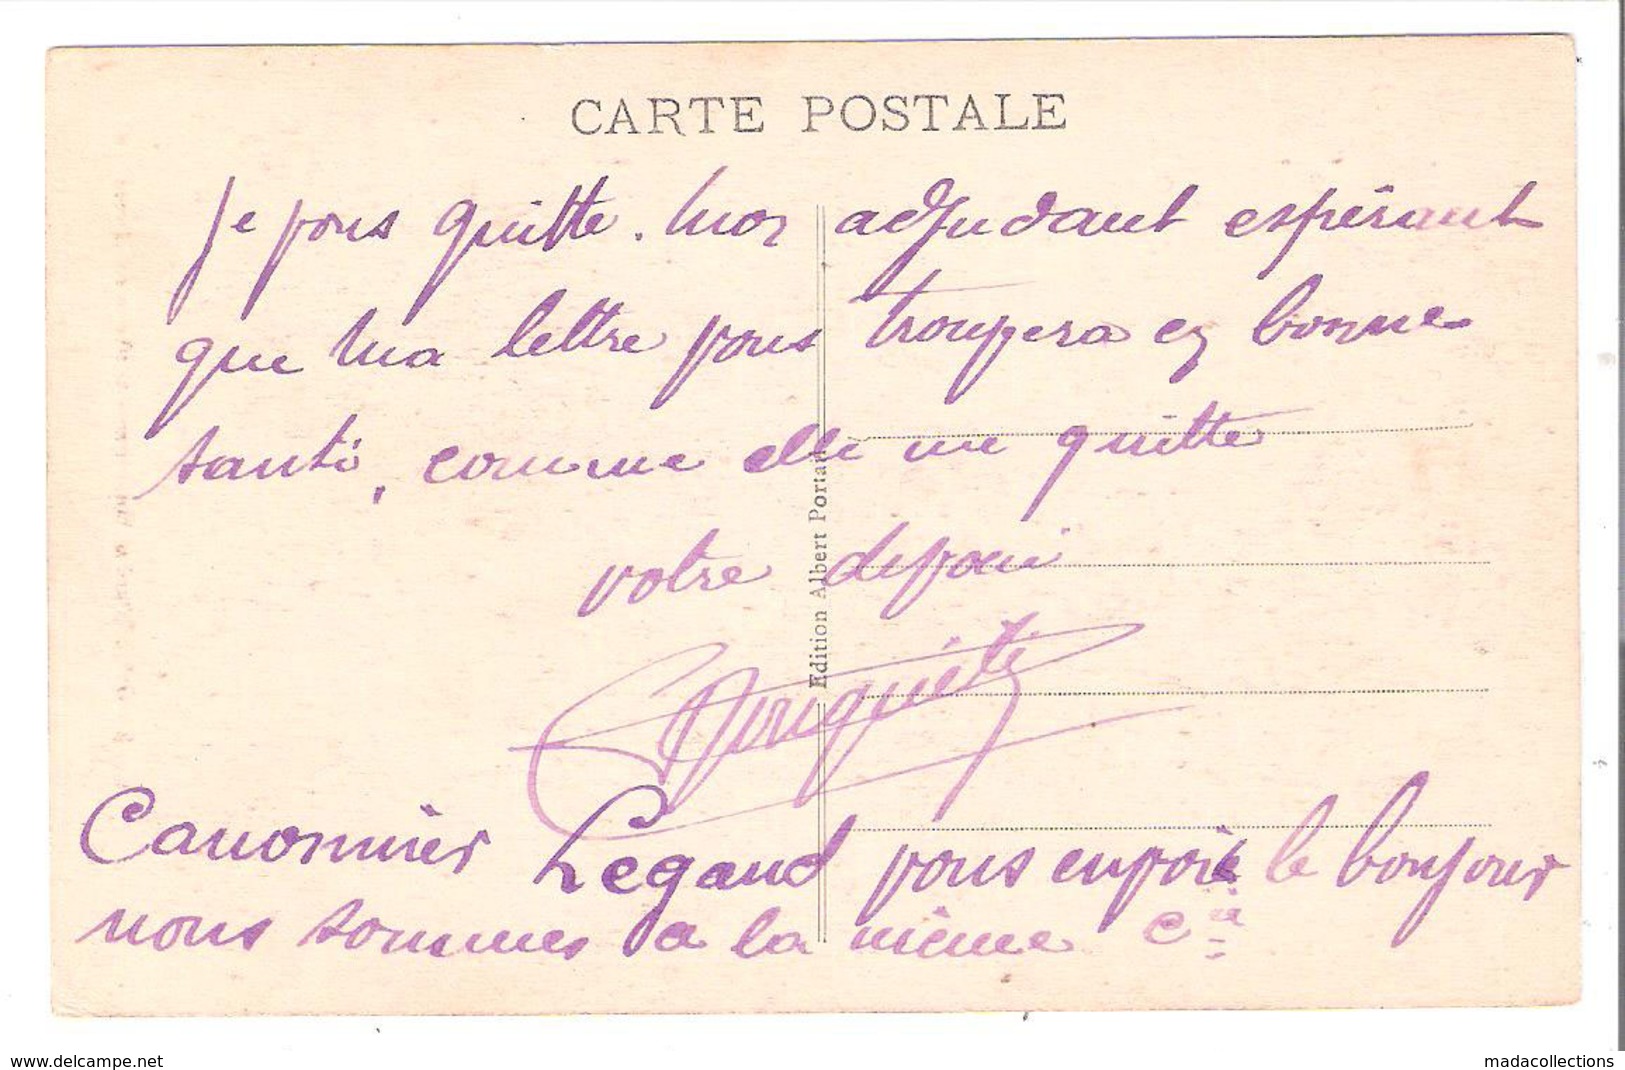 CARTE POSTALE
Je vous quitte. Mon adjudant espérant
que ma lettre vous trouvera en bonne
santé, comme elle me quitte
votre
Edition Albert Portail
Canonnier Legaud vous envoie le bonjour
nous sommes a la même Cie
www.delcampe.net
madacollections